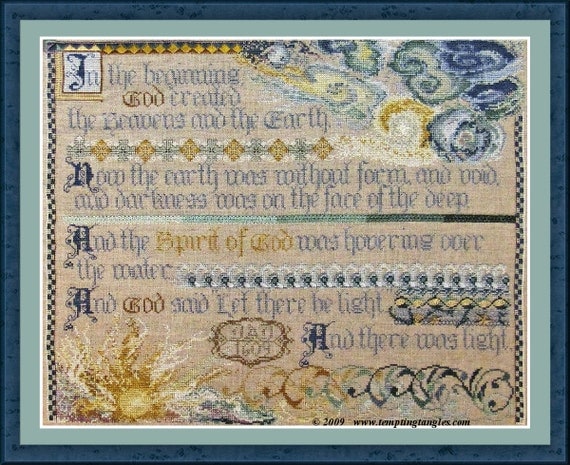 In the beginning
God created
the Heavens and the Earth
Now the earth was without form, and void,
and darkness was on the face of the deep
And the Spirit of God was hovering over
the water
And God said Let there be light
And there was light
© 2009 www.temptingtangles.com